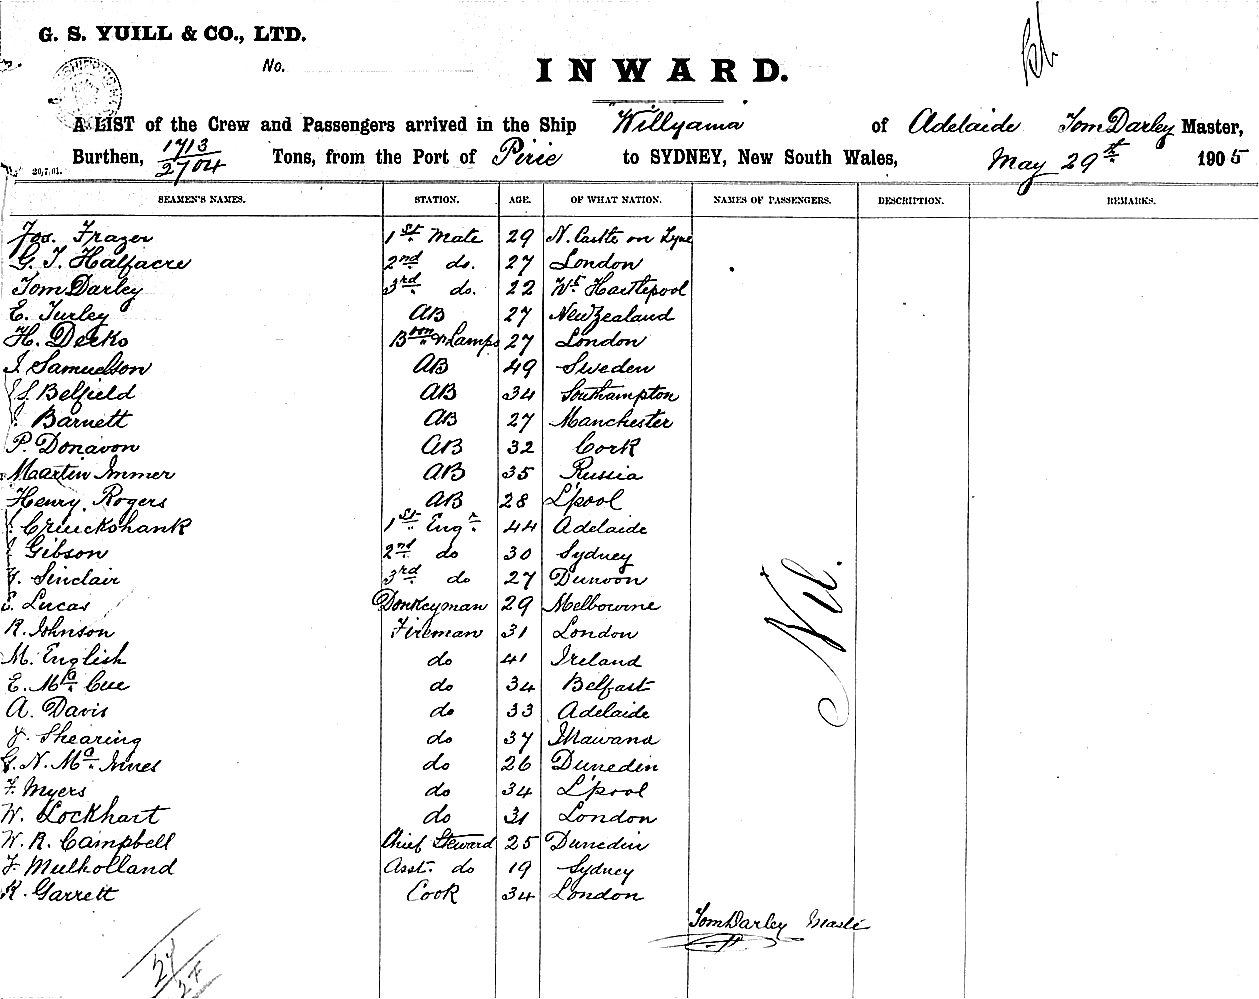 G. S. YUILL & CO., LTD.
No.
INWARD.
A LIST of the Crew and Passengers arrived in the Ship "Willyama" of Adelaide Tom Darley Master,
Burthen, 1713/2704 Tons, from the Port of Pirie to SYDNEY, New South Wales, May 29th 1905
20,7,01.
SEAMEN'S NAMES. STATION. AGE. OF WHAT NATION. NAMES OF PASSENGERS. DESCRIPTION. REMARKS.
Jos. Frazer 1st Mate 29 N. Castle on Tyne
G. T. Halfacre 2nd do. 27 London
Tom Darley 3rd do. 22 Wt Hartlepool
E. Turley AB 27 New Zealand
H. Derks Bosn & Lamps 27 London
J. Samuelson AB 49 Sweden
J. Belfield AB 34 Southampton
J. Barnett AB 27 Manchester
P. Donavon AB 32 Cork
Martin Immer AB 35 Russia
Henry Rogers AB 28 L'pool
J. Cruickshank 1st Engr 44 Adelaide
J. Gibson 2nd do 30 Sydney
Sinclair 3rd do 27 Dunoon
Lucas Donkeyman 29 Melbourne
R. Johnson Fireman 31 London
M. English do 41 Ireland
E. McCue do 34 Belfast
A. Davis do 33 Adelaide
J. Shearing do 37 Illawana
G. N. McInnes do 26 Dunedin
F. Myers do 34 L'pool
W. Lockhart do 31 London
W. R. Campbell Chief Steward 25 Dunedin
F. Mulholland Asst. do 19 Sydney
R. Garrett Cook 34 London
Nil.
Tom Darley Master
27
27